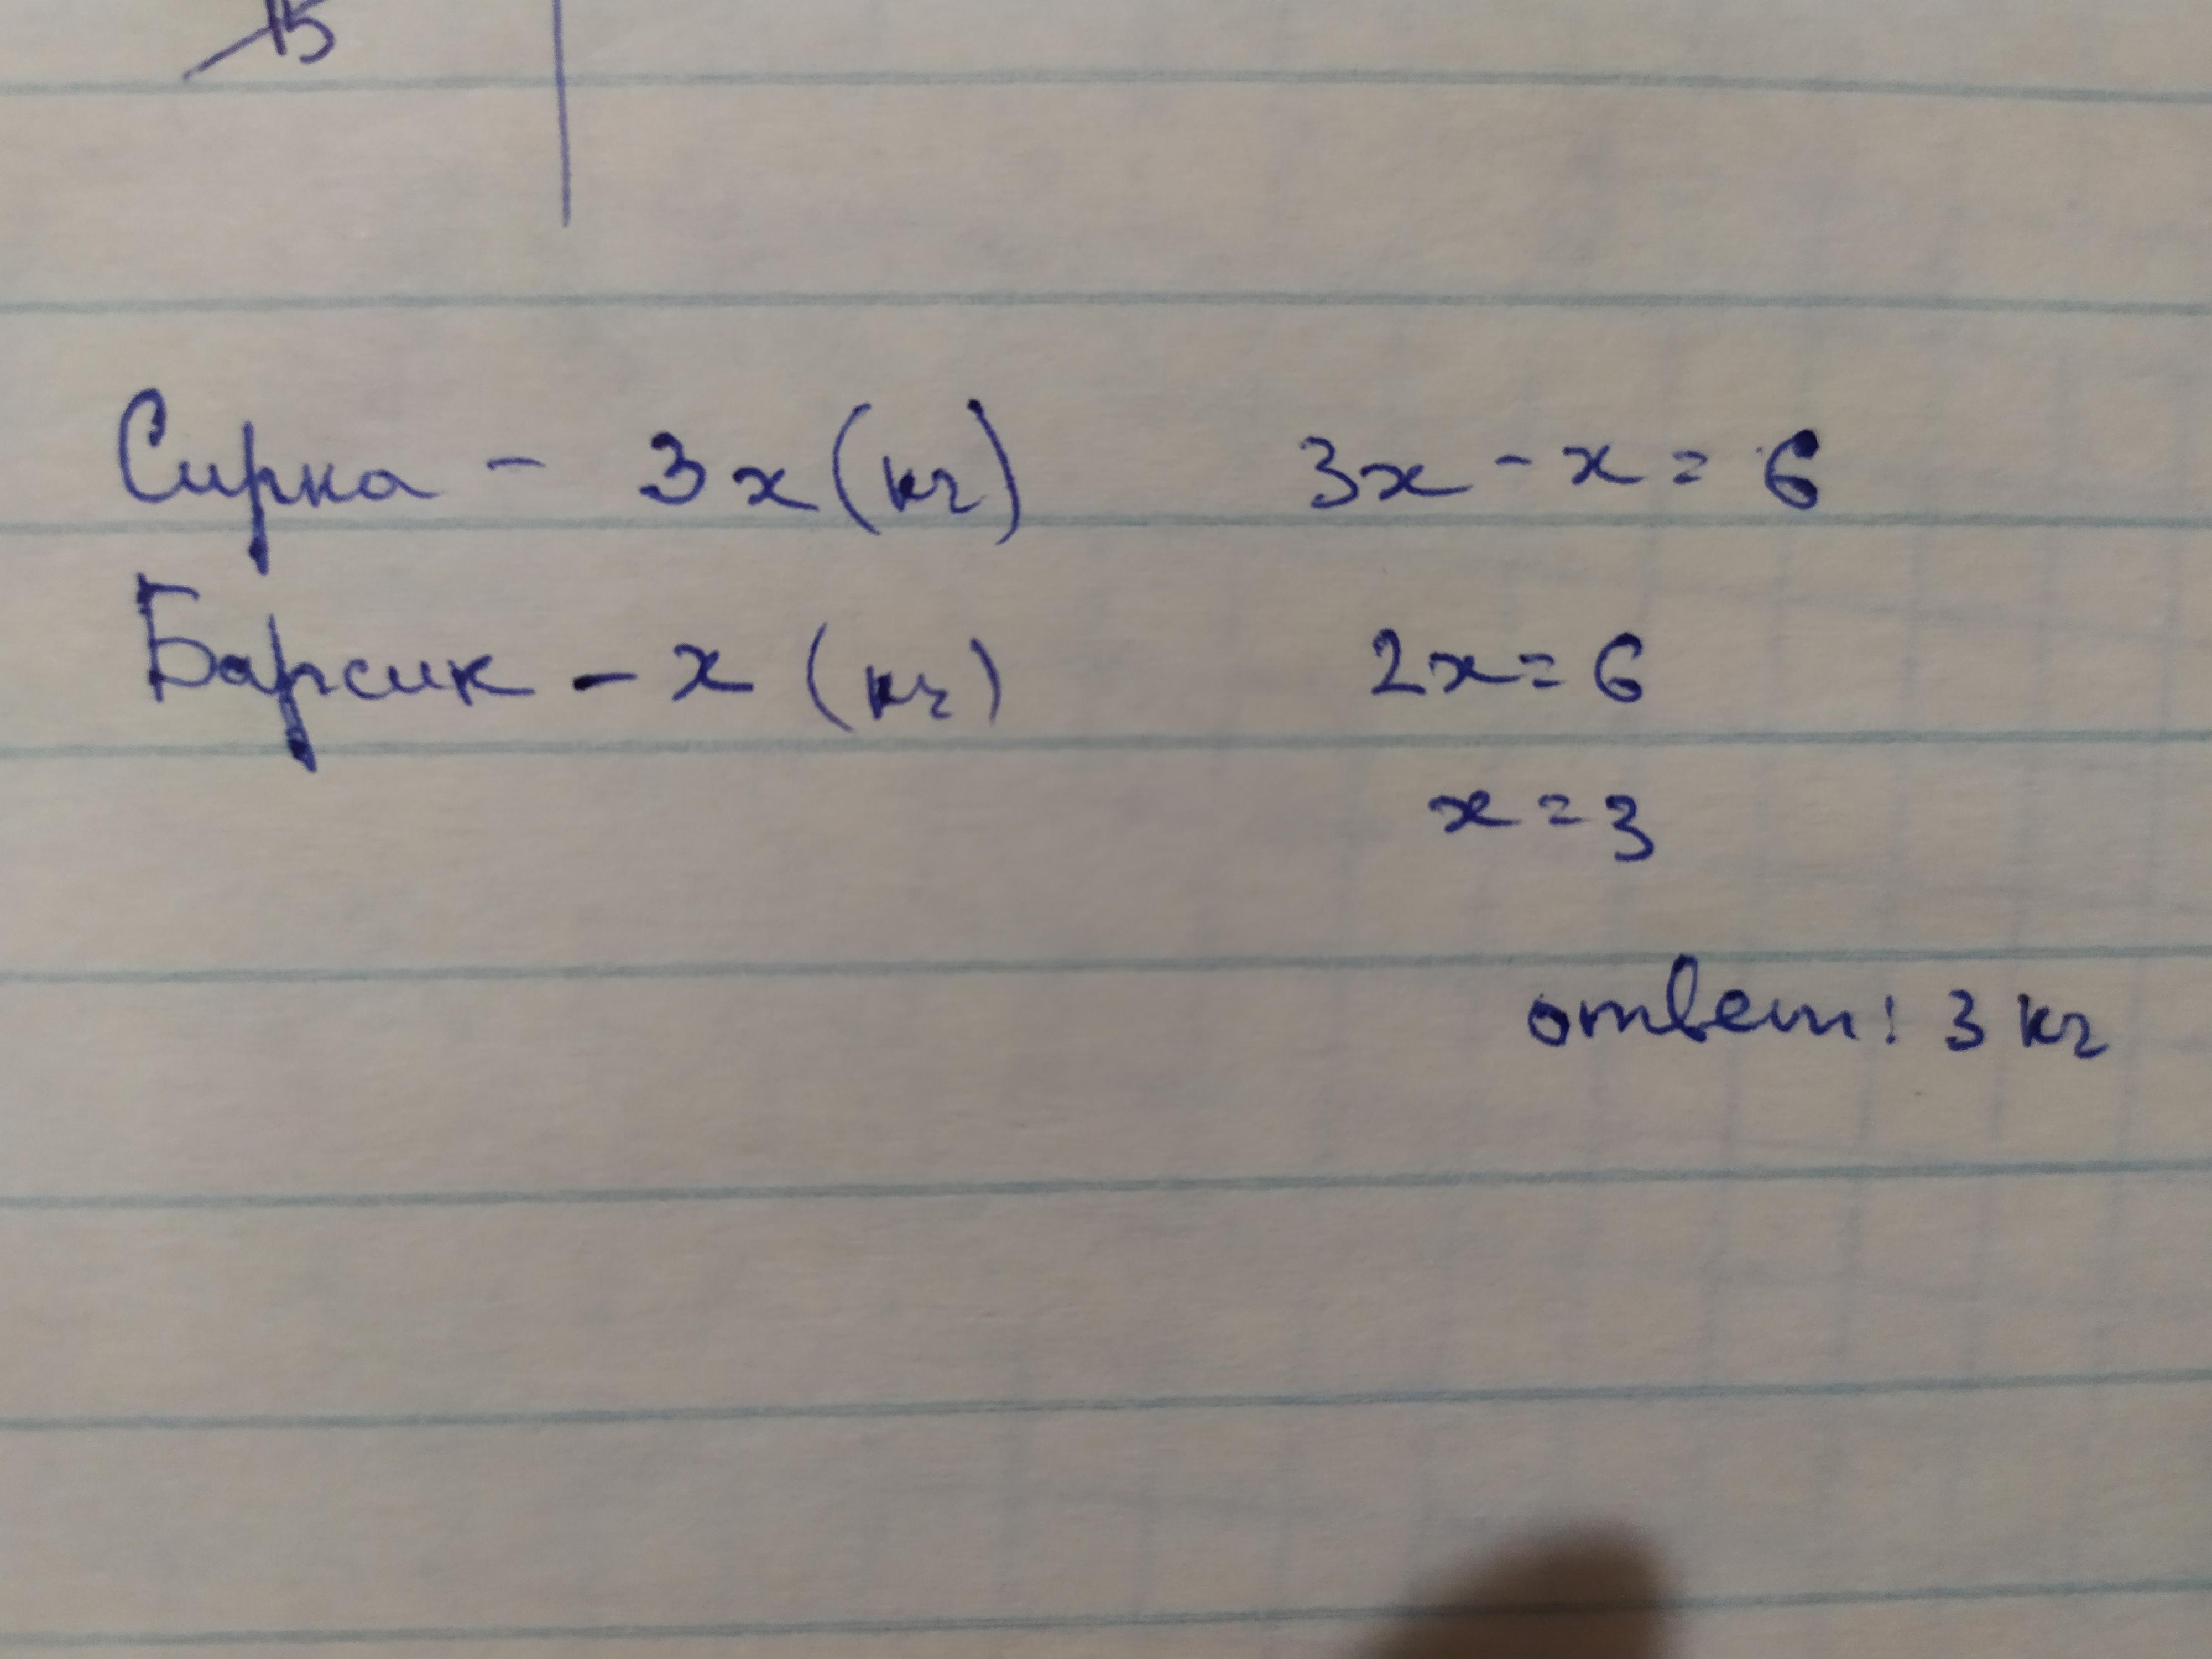 15
Сирка - 3x (кг) 3x - x = 6
Барсик - x (кг) 2x = 6
x = 3
ответ: 3 кг